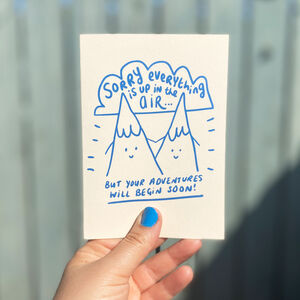 SORRY everything
is up in the
air...
BUT YOUR ADVENTURES
WILL BEGIN SOON!